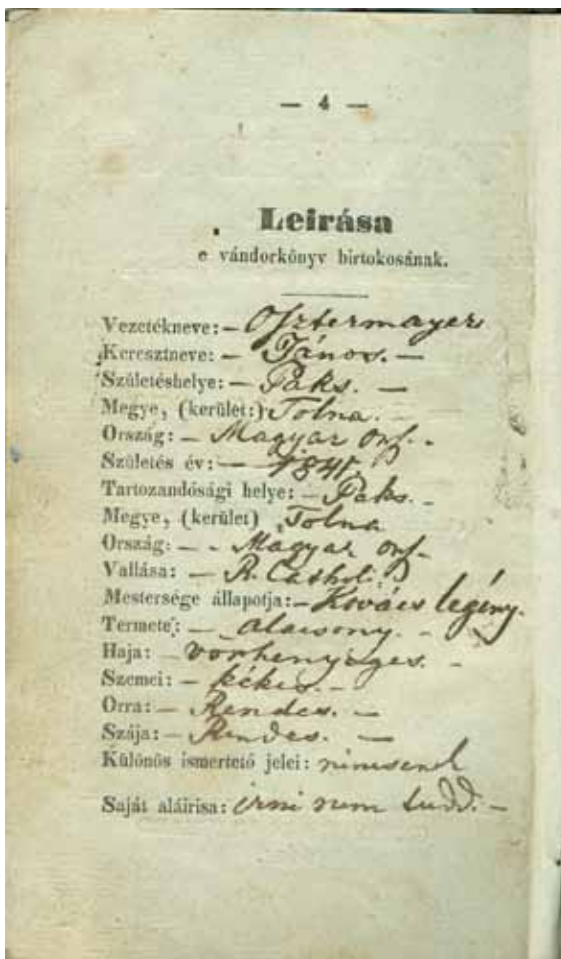 — 4 —
Leirása
e vándorkönyv birtokosának.
Vezetékneve: – Osztermayer
Keresztneve: – János. –
Születéshelye: – Paks. –
Megye, (kerület:) Tolna. –
Ország: – Magyar orsz. –
Születés év: –
Tartozandósági helye: – Paks. –
Megye, (kerület) Tolna
Ország: – – Magyar orsz –
Vallása: – R. Cathol:
Mestersége állapotja: – Kovács legény.
Termete: – alacsony. –
Haja: – vörhenyeges. –
Szemei: – kékes. –
Orra: – Rendes. –
Szája: – Rendes. –
Különös ismertető jelei: nincsenek
Saját aláirisa: irni nem tudd. –